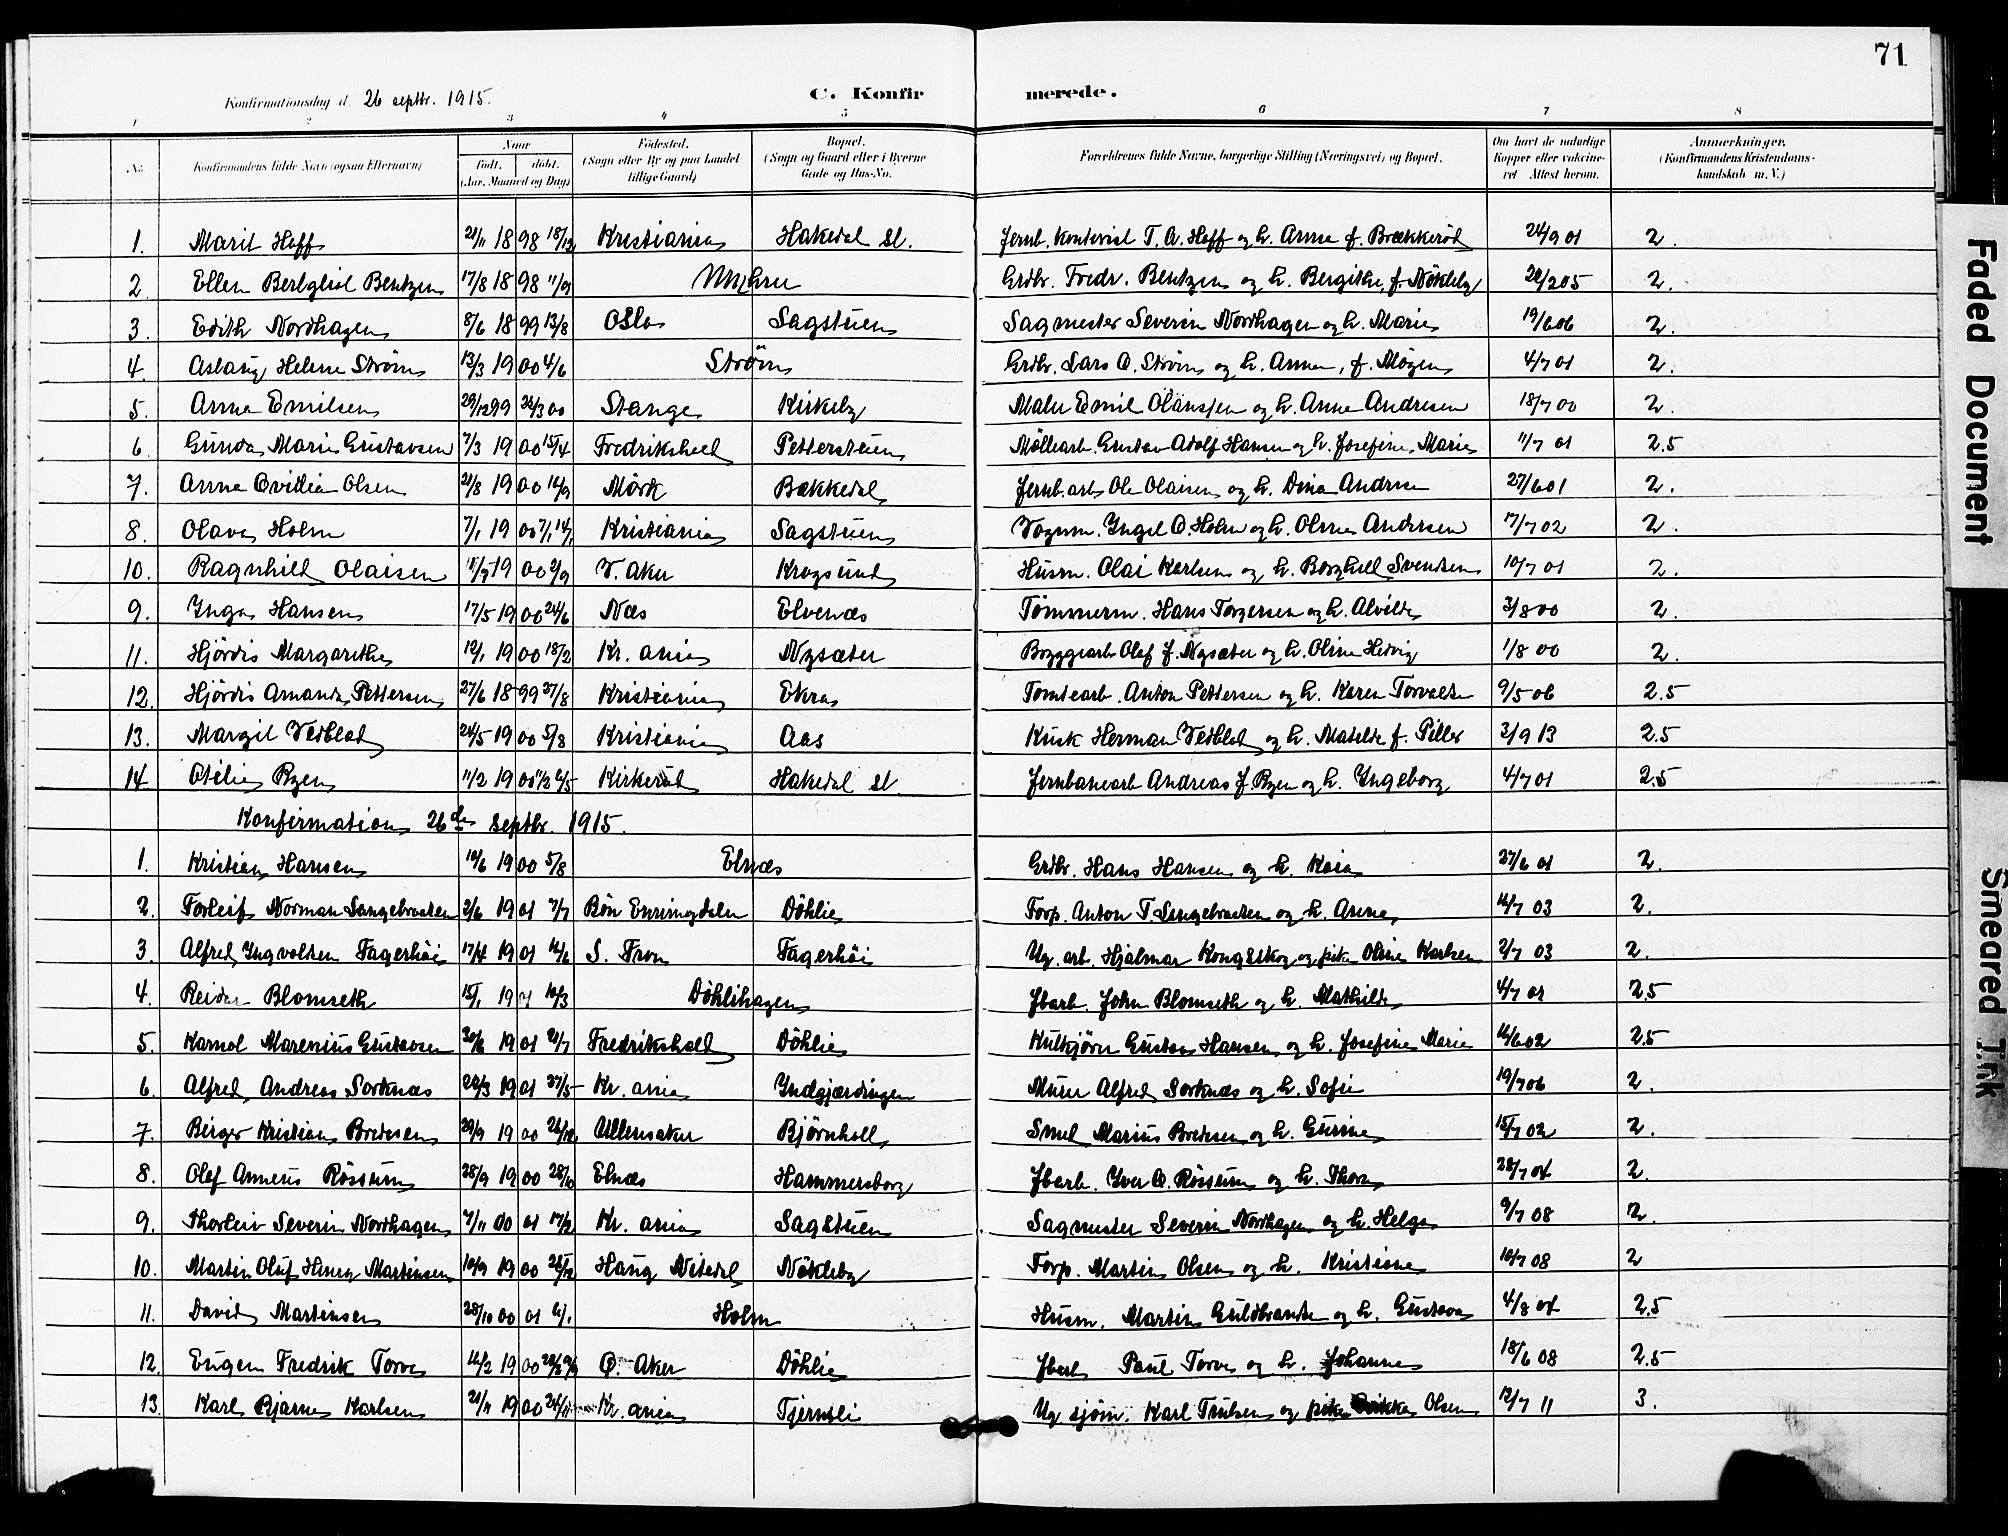 71
Konfirmationsdag d. 26 septbr. 1915.
C. Konfirmerede.
1 2 3 4 5 6 7 8
No. Konfirmandens fulde Navn (ogsaa Efternavn) Naar født. døbt. (Aar, Maaned og Dag) Fødested. (Sogn eller By og paa Landet tillige Gaard) Bopæl. (Sogn og Gaard eller i Byerne Gade og Hus-No. Forældrenes fulde Navne, borgerlige Stilling (Næringsvei) og Bopæl. Om havt de naturlige Kopper eller vakcineret Attest herom. Anmerkninger. (Konfirmandens Kristendomskundskab m. V.)
1. Marit Hoff 21/11 1898 18/12 Kristiania Hakedal st. Jernb. kontorist T. A. Hoff og h. Anna f. Brækkerød 24/9 01 2.
2 Ellen Bergliot Bentzen 17/8 1898 11/9 Grdbr. Fredr. Bentzen og h. Bergithe, f. Nökleby 2.
3. Edith Nordhagen 8/6 1899 13/8 Oslo Sagstuen Sagmester Severin Nordhagen og h. Marie 19/6 06 2.
4. Aslaug Helene Strøm 13/3 1900 4/6 Strøm Grdbr. Lars O. Strøm og h. Anna, f. Mögen 4/7 01 2.
5. Anna Emilsen 29/12 99 Stange Kirkeby Maler Emil Olansen og h. Anna Andresen 18/7 00 2.
6 Gunda Marie Gustavsen 7/3 1900 15/4 Fredrikshald Petterstuen Møllearb. Gustav Adolf Hansen og h. Josefine Marie 11/7 01 2.5
7. Anna Ovidia Olsen 21/8 1900 Mörk Bækkedal Jernb.arb. Ole Olaisen og h. Dina Andrea 27/6 01 2.
8. Olava Holm 7/1 1900 Kristiania Sagstuen Vognm. Yngel O. Holm og h. Olena Andersen 17/7 02 2.
10. Ragnhild Olaisen 1900 2/9 V. Aker Krogsund Husm. Olai Karlsen og h. Borghild Svendsen 10/7 01 2.
9. Ynga Hansen 17/5 1900 24/6 Næs Elvenæs Tømmerm. Hans Torgersen og h. Alvilde 3/8 00 2.
11. Hjördis Margarethe 1900 18/2 Kr.ania Nysæter Byggearb. Olaf J. Nysæter og h. Oline Hedvig 1/8 00 2.
12. Hjördis Amanda Pettersen 27/6 1899 27/8 Kristiania Ekra Tomtearb. Anton Pettersen og h. Karen Torvalds 9/5 06 2.5
13. Margit Vedblad 24/5 1900 5/8 Kristiania Aas Kusk Herman Vedblad og h. Matilde f. Piller 3/9 13 2.5
14 Otilie Ryen 11/2 1900 Kirkerud Hakedal st. Jernbanearb Andreas J. Ryen og h. Yngeborg 4/7 01 2.5
Konfirmation 26de septbr. 1915.
1. Kristian Hansen 10/6 1900 5/8 Elnæs Grdbr. Hans Hansen og h. Kaia 27/6 01 2.
2. Torleif Norman Langebraaten 2/6 1901 7/7 Bön Enningdalen Döhlie Forp. Anton T. Langebraaten og h. Anna 14/7 03 2.
3 Alfred Yngvoldsen Fagerhöi 17/4 1901 16/6 S. Fron Fagerhöi Ug. arb. Hjalmar Kongelskog og pike Oline Karlsen 2/7 03 2.
4. Reidar Blomseth 15/1 1901 10/3 Döhlihagen Jbarb. John Blomseth og h. Mathilde 4/7 01 2.5
5. Karnol Marenius Gustavsen 1901 21/7 Fredrikshald Döhlie Kulkjörer Gustav Hansen og h. Josefine Marie 14/6 02 2.5
6. Alfred Andreas Sorknæs 1901 27/5 Kr.ania Yndgjærdingen Murer Alfred Sorknæs og h. Sofie 19/7 06 2.
7. Birger Kristian Bredesen 29/9 1900 26/12 Ullensaker Bjørnholt Smed Marius Bredesen og h. Gurine 15/7 02 2.
8. Olaf Anneus Rössum 28/9 1900 28/10 Elnæs Hammersborg Jbarb. Iver A. Røssum og h. Thora 2.
9. Thorleiv Severin Nordhagen 7/11 00 01 17/2 Kr.ania Sagstuen Sagmester Severin Nordhagen og h. Helga 9/7 08 2.
10. Martin Oluf Henry Martinsen 10/9 1900 Haug Nitedal Nökleby Forp. Martin Olsen og h. Kristiane 10/7 08 2
11. David Martinsen 28/10 00 01 6/1 Holm Husm. Martin Guldbrandsen og h. Gustava 4/8 04 2.5
12. Eugen Fredrik Torve 14/2 1900 Ö. Aker Döhlie Jbarb Paul Torve og h. Johanna 18/6 08 2.5
13. Karl Bjarne Karlsen 21/11 1900 Kr.ania Tjernsli Ug sjöm. Karl Trulsen og pike Olsen 12/7 11 3.
Faded Document
Smeared Ink